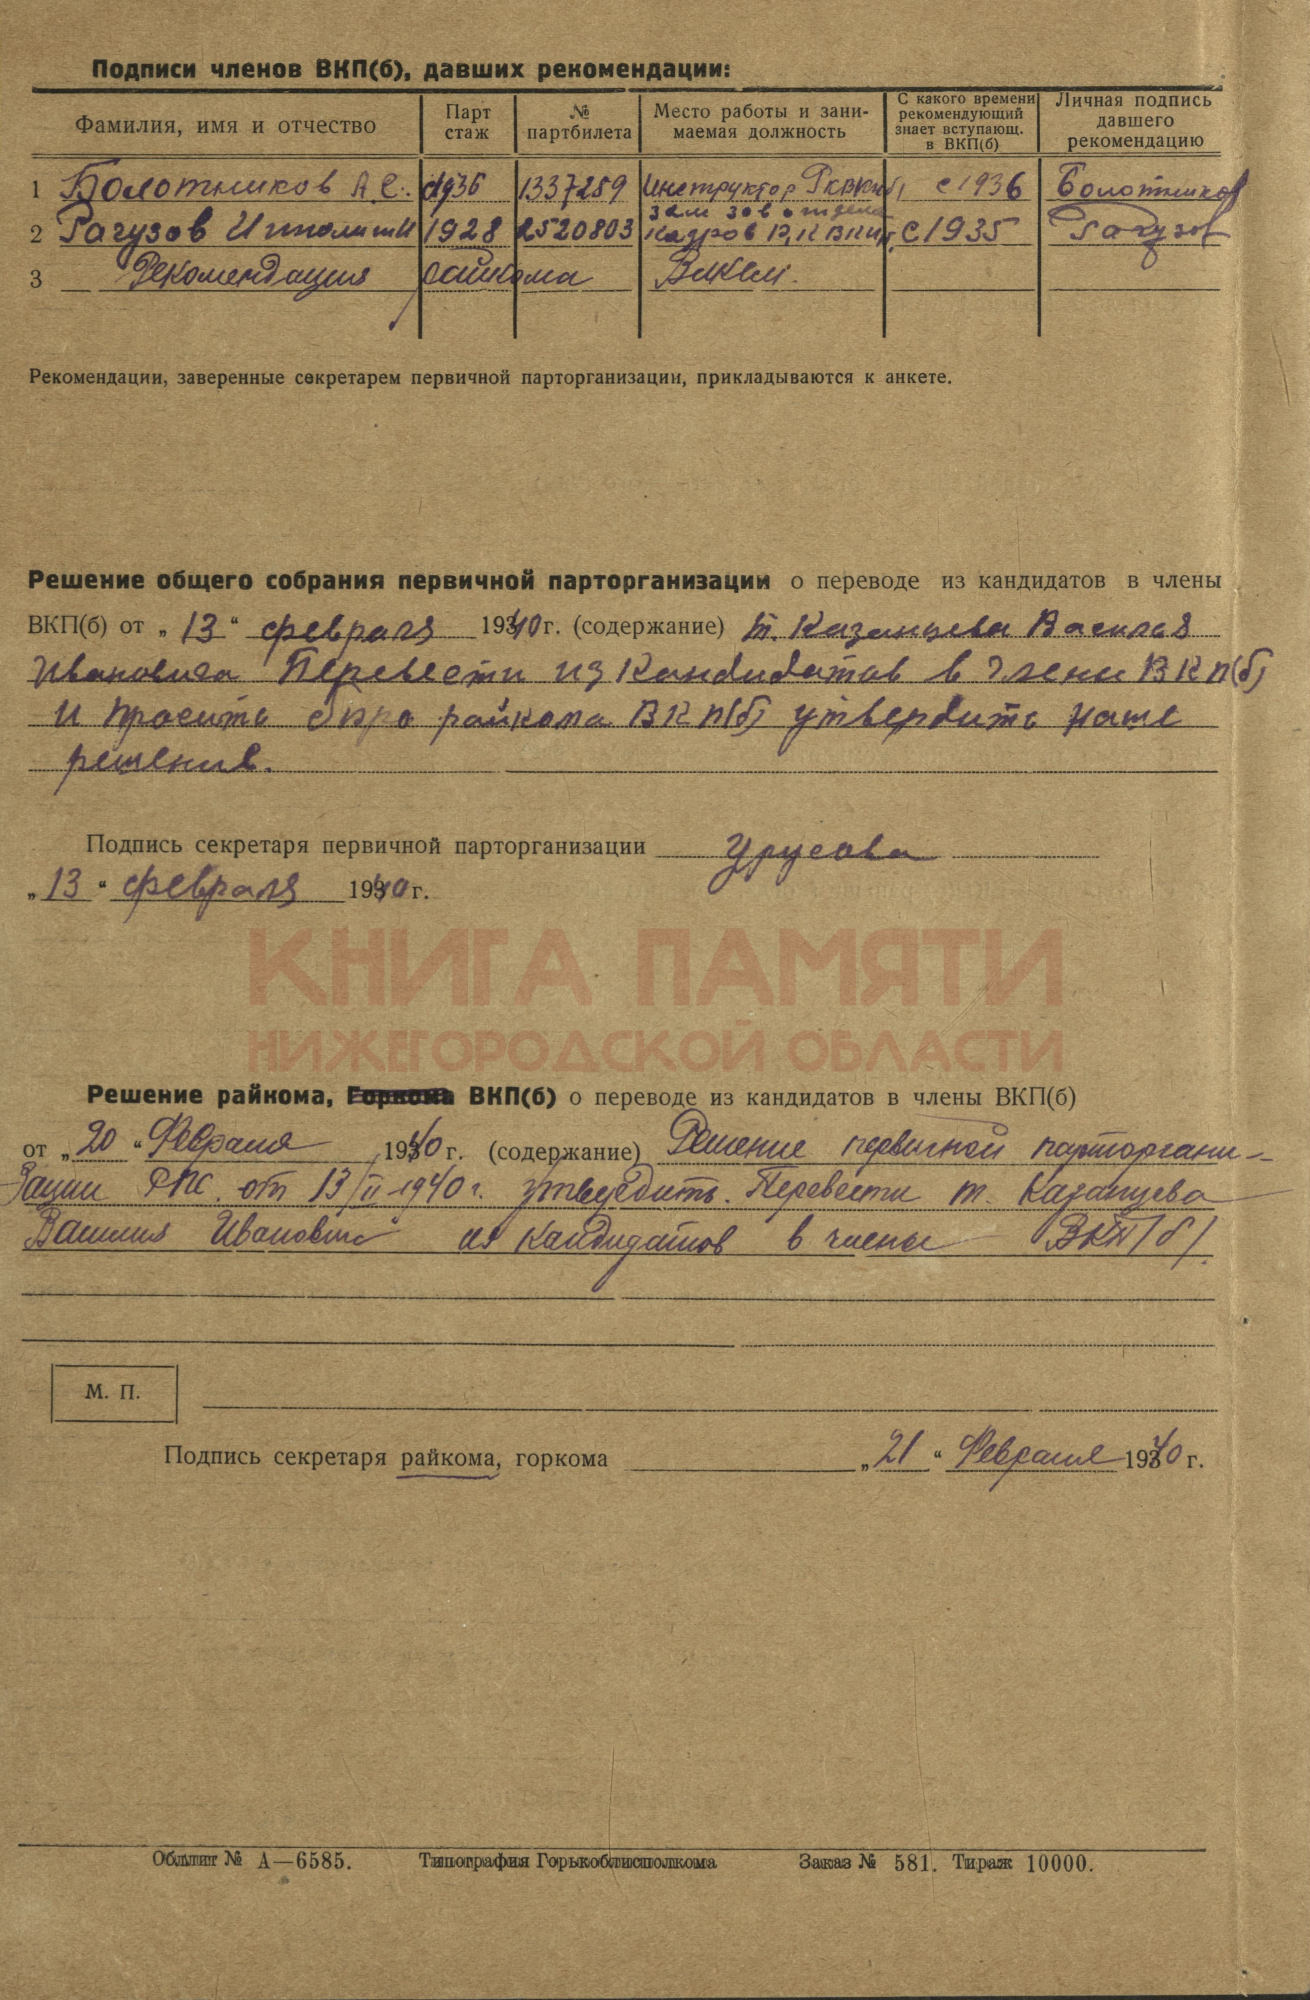 Подписи членов ВКП(б), давших рекомендации:
Фамилия, имя и отчество | Парт стаж | № партбилета | Место работы и занимаемая должность | С какого времени рекомендующий знает вступающ. в ВКП(б) | Личная подпись давшего рекомендацию
1 Болотников А.С. 1936 1337259 Инструктор РКВКП(б) с 1936 Болотников
2 Рагузов Иполит И 1928 2520803 зам зав отдела кадров РК ВКП(б) с 1935 Рагузов
3 Рекомендация райкома ВЛКСМ.
Рекомендации, заверенные секретарем первичной парторганизации, прикладываются к анкете.
Решение общего собрания первичной парторганизации о переводе из кандидатов в члены
ВКП(б) от „13“ февраля 1940 г. (содержание) т. Казанцева Василия
Ивановича Перевести из Кандидатов в члены ВКП(б)
и просить бюро райкома ВКП(б) утвердить наше
решение.
Подпись секретаря первичной парторганизации Урусова
„13“ февраля 1940 г.
КНИГА ПАМЯТИ
НИЖЕГОРОДСКОЙ ОБЛАСТИ
Решение райкома, Горкома ВКП(б) о переводе из кандидатов в члены ВКП(б)
от „20“ Февраля 1940 г. (содержание) Решение первичной парторгани-
зации РПС. от 13/II-1940 г. утвердить. Перевести т. Казанцева
Василия Иванович из кандидатов в члены ВКП/б/.
М. П.
Подпись секретаря райкома, горкома „21“ Февраля 1940 г.
Обллит № А—6585. Типография Горькоблисполкома Заказ № 581. Тираж 10000.